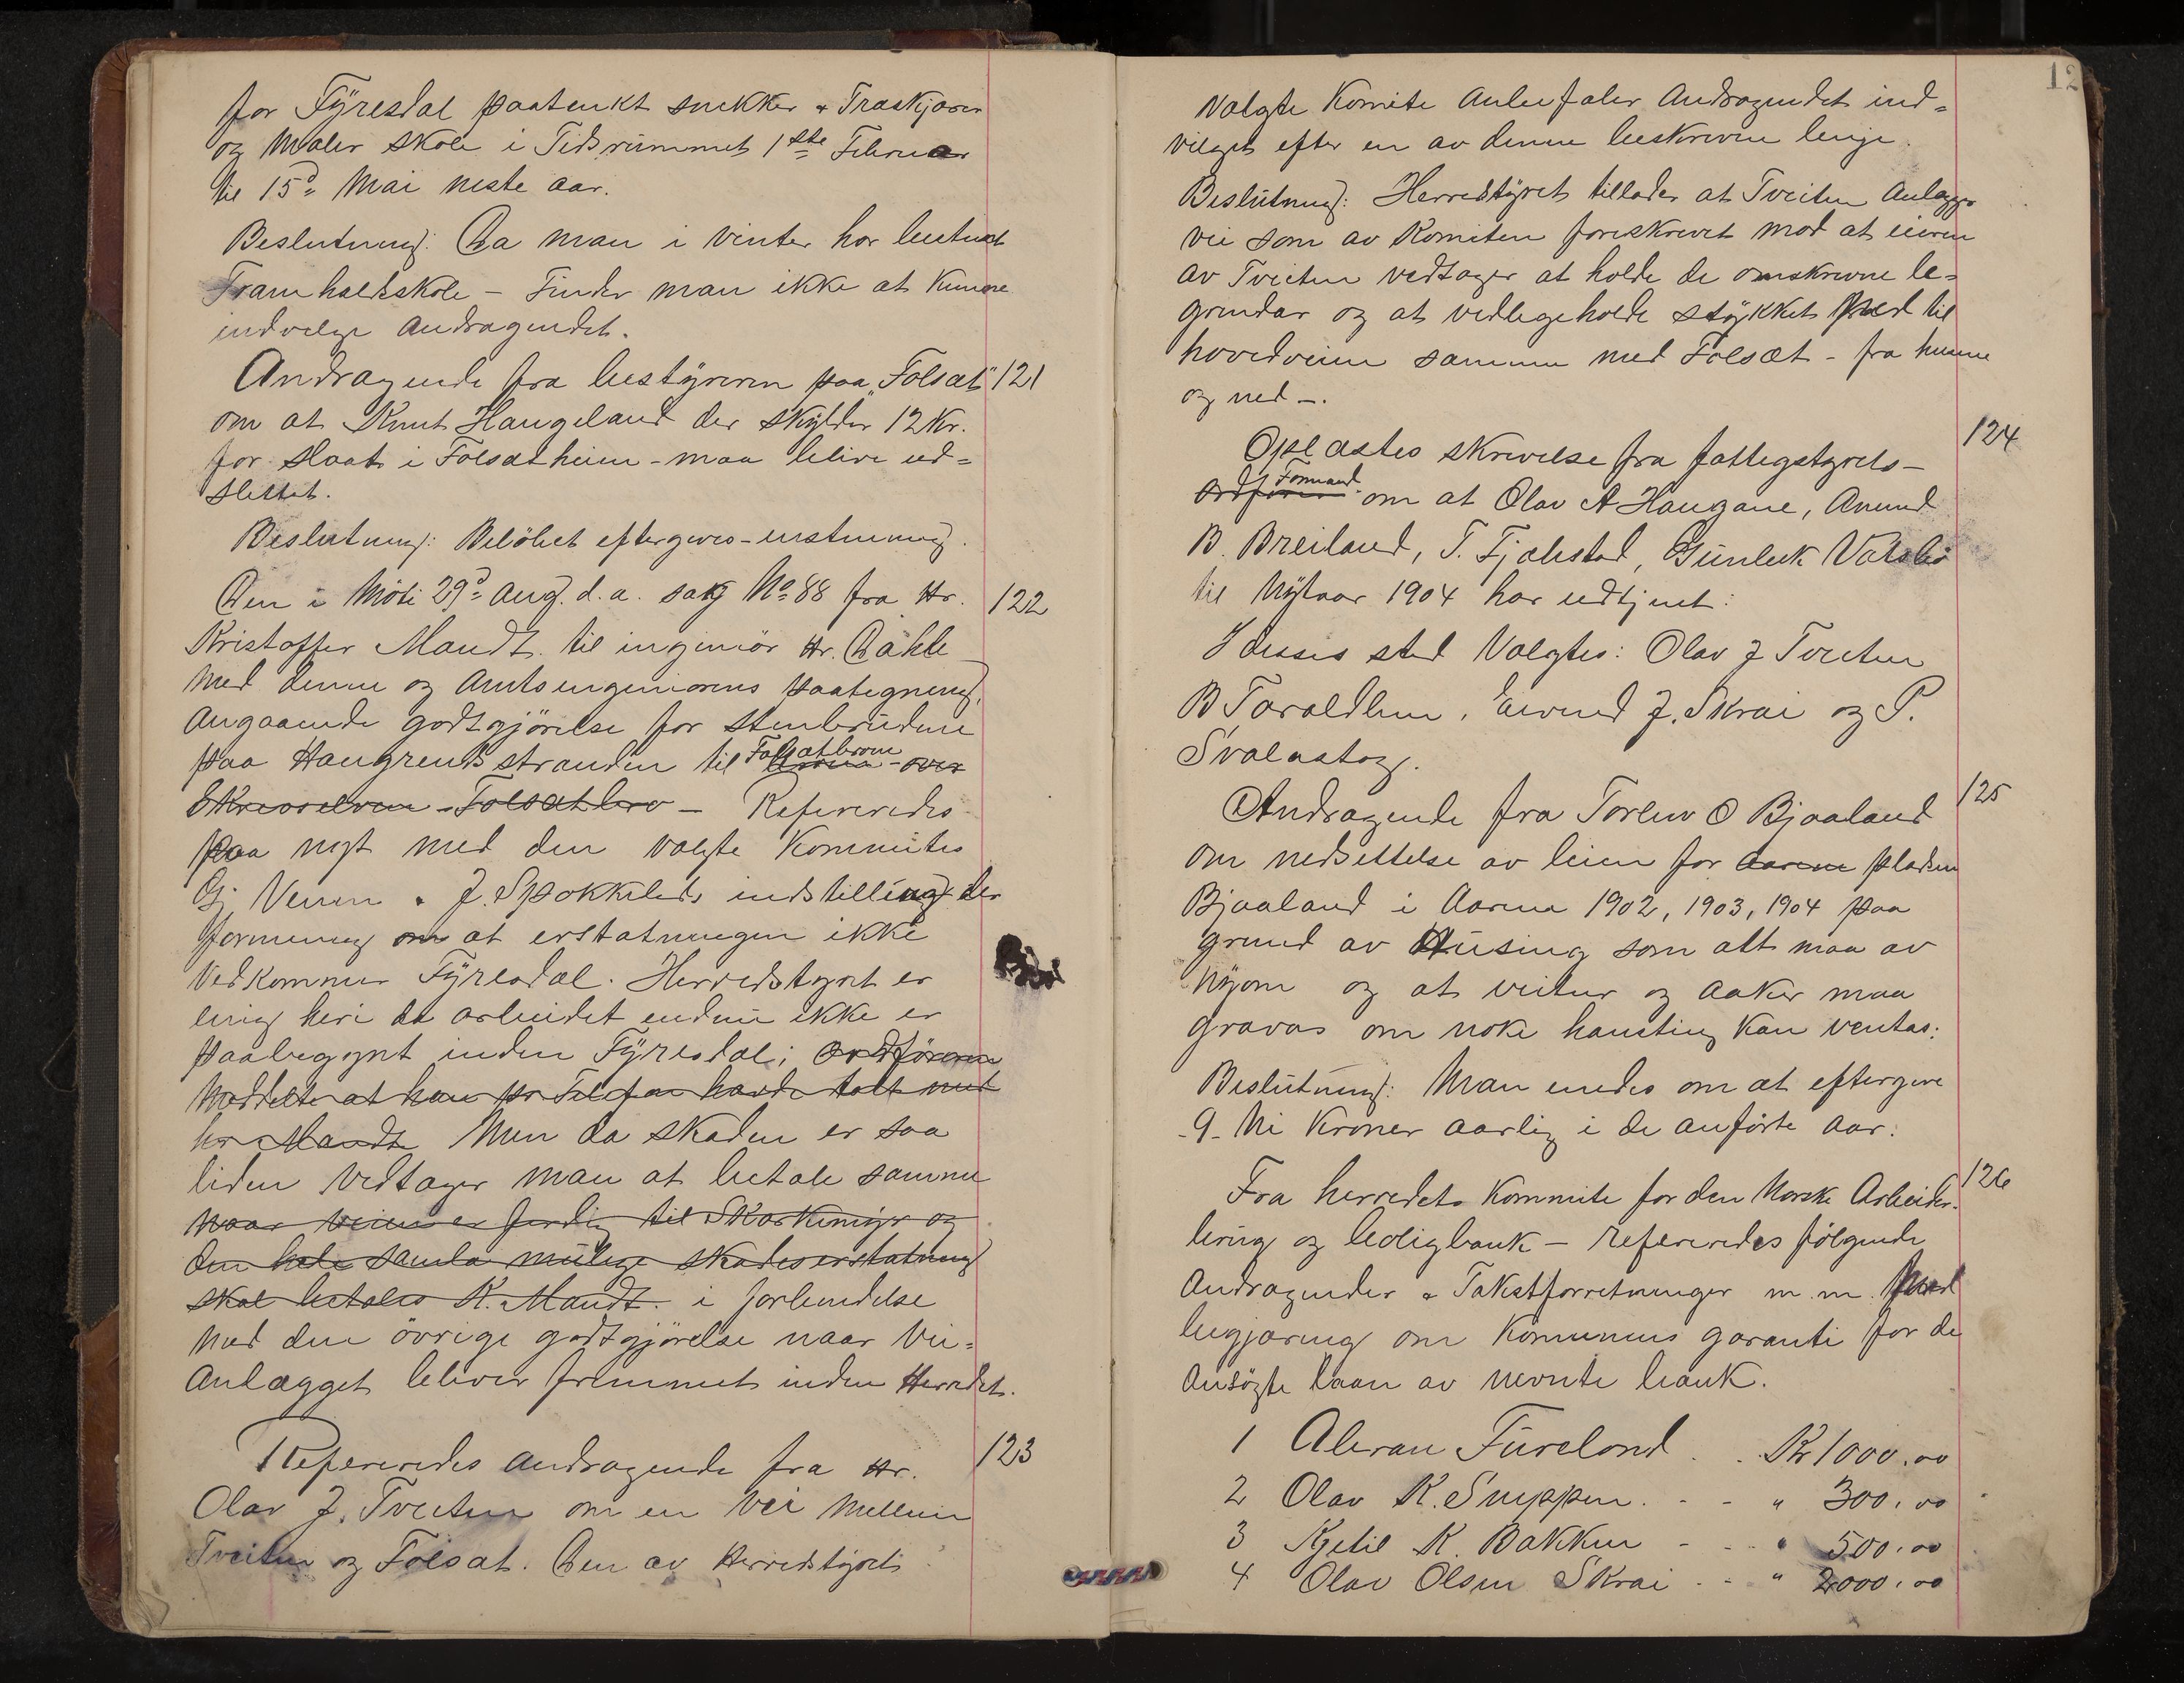 for Tyresdal paatenkt snekker & Træskjærer
og Maler skole i Tidsrummet 1ste Februar
til 15d. Mai neste aar.
Beslutning: Da man i vinter har bestemt
Framhaldsskole – Finder man ikke at kunne
indvelge Andragendet.
Andragende fra bestyreren paa "Folsæt" 121
om at Knut Haugeland der skylder 12 Kr.
for slaat i Folsætheien – maa blive ud=
slettet.
Beslutning: Belöbet eftergives – enstemmig.
Den i Möte 29d. Aug. d.a. sag No 88 fra Hr. 122
Kristoffer Mandt til ingeniör Hr. Dahle
med denne og Amtsingeniörens paategning,
Angaaende godtgjörelse for Stenbrudene
paa Haugrendsstranden til Folsætbroene over
Folsætbro – Refereredes
paa nyt med den valgte Kommites
Gj Veum & J. Spokkelids indstilling der
formening om at erstatningen ikke
vedkommer Tyresdal. Herredstyret er
enig heri da arbeidet endnu ikke er
paabegynt inden Tyresdal; ordföreren
Meddelte at han pr Telefon havde talt med
hr. Mandt Men da skaden er saa
liden vedtager man at betale samme
naar veien er ferdig til Skarkemyr og
den hele samla mulige skadeserstatning
skal betales K. Mandt. i forbindelse
med den övrige godtgjörelse naar Vei=
Anlægget bliver fremmet inden Herredet.
Refereredes andragende fra Hr. 123
Olav J. Tveiten om en Vei mellem
Tveiten og Folsæt. Den av Herredstyrets
12
Valgte Komite Anbefaler Andragendet ind=
vilget efter en av denne beskrevne linje.
Beslutning: Herredstyret tillader at Tveiten Anlægger
vei som av Komiteen foreskrevet mod at eieren
av Tveiten vedtager at holde de omskrevne le=
grindar og at vedligeholde stykket ned til
hovedveien sammen med Folsæt – fra husene
og ned –.
Oplæstes skrivelse fra fattigstyrets – 124
ordförer Formand om at Olav A Haugane, Anund
B. Breiland, T. Fjalestad, Gunleik Vatsbö
til Nytaar 1904 har udtjent:
I disses sted Valgtes: Olav J Tveiten
B Taraldlien, Eivind J. Skrai og P.
Svalastog.
Andragende fra Torleiv O Bjaaland 125
om nedsettelse av leien for aarene pladsen
Bjaaland i Aarene 1902, 1903, 1904 paa
grund av Husing som alt maa av
nyom og at veitur og aaker maa
gravas om noke hausting kan ventas:
Beslutning: Man enedes om at eftergive
-9- Ni Kroner aarlig i de anförte Aar.
Fra herredets Kommite for den Norske Arbeider- 126
brug og boligbank – refereredes fölgende
Andragender & Takstforretninger m.m. Med
begjæring om Komunens garanti for de
Ansögte laan av nevnte bank.
1 Aleran Fureland . . Kr 1000.00
2 Olav K. Suppen . - - " 300.00
3 Kjetil K. Bakken - - " 500.00
4 Olav Olsen Skrai . - " 2000.00